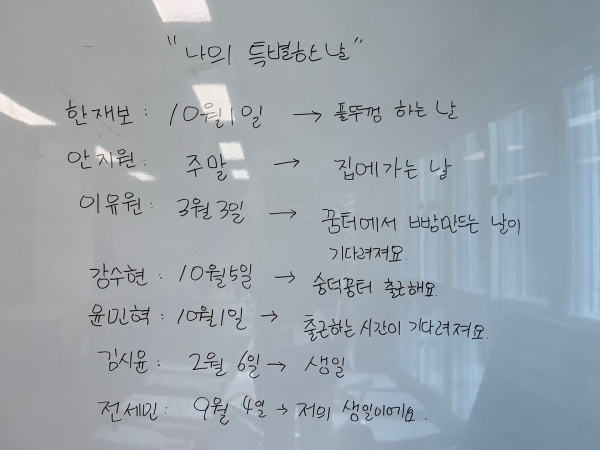 "나의 특별한 날"
한재보 : 10월 1일 → 풀뚜껌 하는 날
안지원 : 주말 → 집에가는 날
이유원 : 3월 3일 → 꿈터에서 빵만드는 날이
기다려져요.
강수현 : 10월 5일 → 숭덕꿈터 출근해요.
윤민혁 : 10월 1일 → 출근하는 시간이 기다려져요.
김시윤 : 2월 6일 → 생일
전세민 : 9월 4일 → 저의 생일이에요.